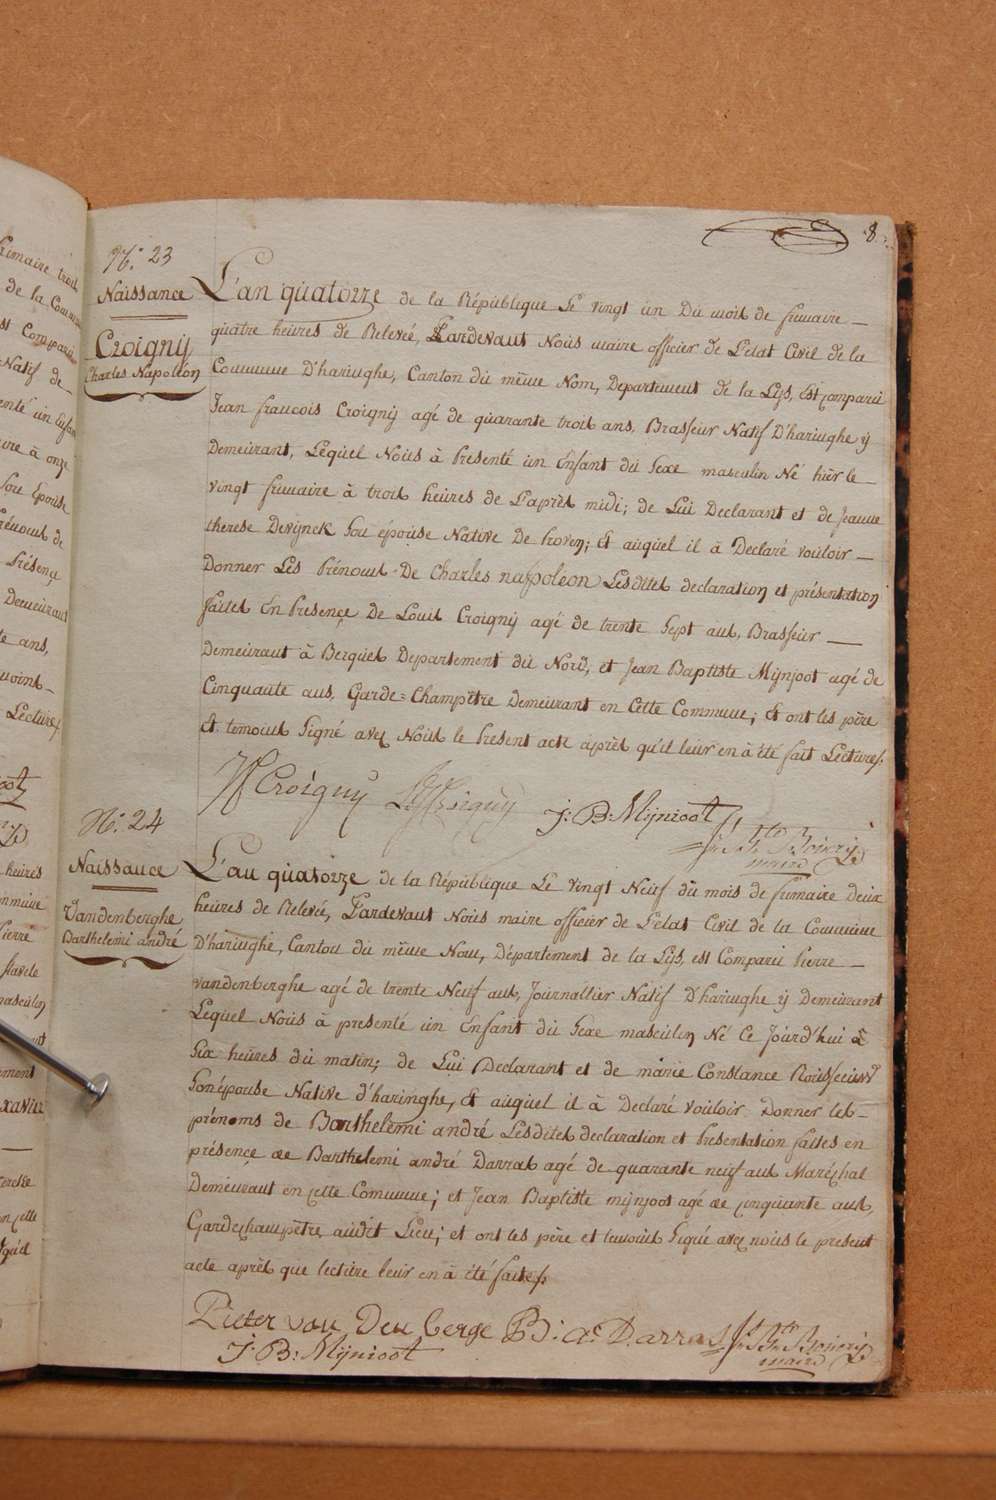 8.
N.º 23
Naissance
Croigny
Charles Napoléon
L'an quatorze de la République Le vingt un Du mois de frimaire
quatre heures de Relevée, Pardevant Nous maire officier de L'etat Civil de la
Commune D'haringhe, Canton du même Nom, Departement de la Lys, Est comparu
Jean francois Croigny agé de quarante trois ans, Brasseur Natif D'haringhe y
Demeurant, Lequel Nous à Presenté un Enfant du Sexe masculin Né hier le
vingt frimaire à trois heures de L'après midi; de Lui Declarant et de Jeanne
therese Devynck Son épouse Native De Proven; Et auquel il à Declaré vouloir
Donner Les Prénoms De Charles napoleon Lesdites declaration et présentation
faites En Presençe De Louis Croigny agé de trente Sept ans, Brasseur
Demeurant à Bergues Departement du Nord, et Jean Baptiste Mynjoot agé de
Cinquante ans, Garde=Champêtre Demeurant en Cette Commune; Et ont les père
Et temoins Signé avec Nous le Present acte après qu'il leur en à été fait Lecture.
Croigny L Croigny J: B: Mijnioot
maire
N.º 24
Naissance
Vandenberghe
Barthelemi andré
L'an quatorze de la République Le vingt Neuf du mois de frimaire deux
heures de Relevée, Pardevant Nous maire officier de L'etat Civil de la Commune
D'haringhe, Canton du même Nom, Département de la Lys, est Comparu Pierre
vandenberghe agé de trente Neuf ans, Journallier Natif D'haringhe y Demeurant
Lequel Nous à presenté un Enfant du Sexe masculin Né Ce Jourd'hui à
Six heures du matin; de Lui Declarant et de marie Constance Rousseeuw
Son épouse Native d'haringhe, Et auquel il à Declaré vouloir Donner les
prénoms de Barthelemi andré Lesdites declaration et Presentation faites en
présence de Barthelemi andré Darras agé de quarante neuf ans Maréchal
Demeurant en cette Commune; et Jean Baptiste mynjoot agé de cinquante ans,
Gardechampêtre audit Lieu; et ont les père et temoins Signé avec nous le present
acte après que lecture leur en à été faite
Pieter van Den berge B: a: Darras
J: B: Mijnioot
maire